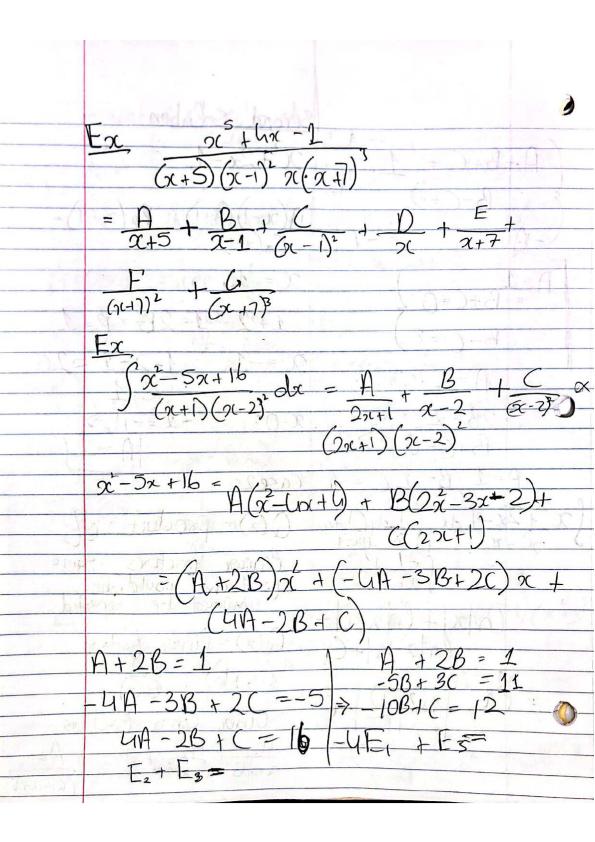 Ex x⁵ + 4x - 1 / (x+5)(x-1)² x(x+7)³
= A/x+5 + B/x-1 + C/(x-1)² + D/x + E/x+7 +
F/(x+7)² + G/(x+7)³
Ex
∫ x² - 5x + 16 / (x+1)(x-2)² dx = A/2x+1 + B/x-2 + C/(x-2)² ×
(2x+1)(x-2)²
x² - 5x + 16 = A(x² - 4x + 4) + B(2x² - 3x - 2) +
C(2x+1)
= (A+2B)x² + (-4A - 3B + 2C)x +
(4A - 2B + C)
A + 2B = 1 | A + 2B = 1
-5B + 3C = 11
-4A - 3B + 2C = -5 ⇒ -10B + C = 12
4A - 2B + C = 16 | -4E₁ + E₃ =
E₂ + E₃ =